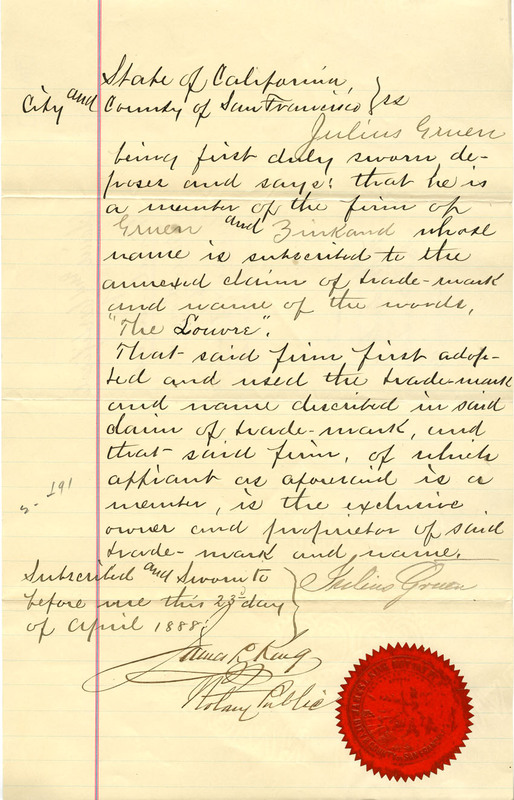 State of California,
City and County of San Francisco } ss
Julius Gruen
being first duly sworn de-
poses and says: that he is
a member of the firm of
Gruen and Zinkand whose
name is subscribed to the
annexed claim of trade-mark
and name of the words,
"The Louvre".
That said firm first adop-
ted and used the trade-mark
and name discribed in said
claim of trade-mark, and
that said firm, of which
affiant as aforesaid is a
member, is the exclusive
owner and proprietor of said
trade-mark and name.
Subscribed and Sworn to
before me this 23d day
of April 1888.
Julius Gruen
James L. King
Notary Public
S-191